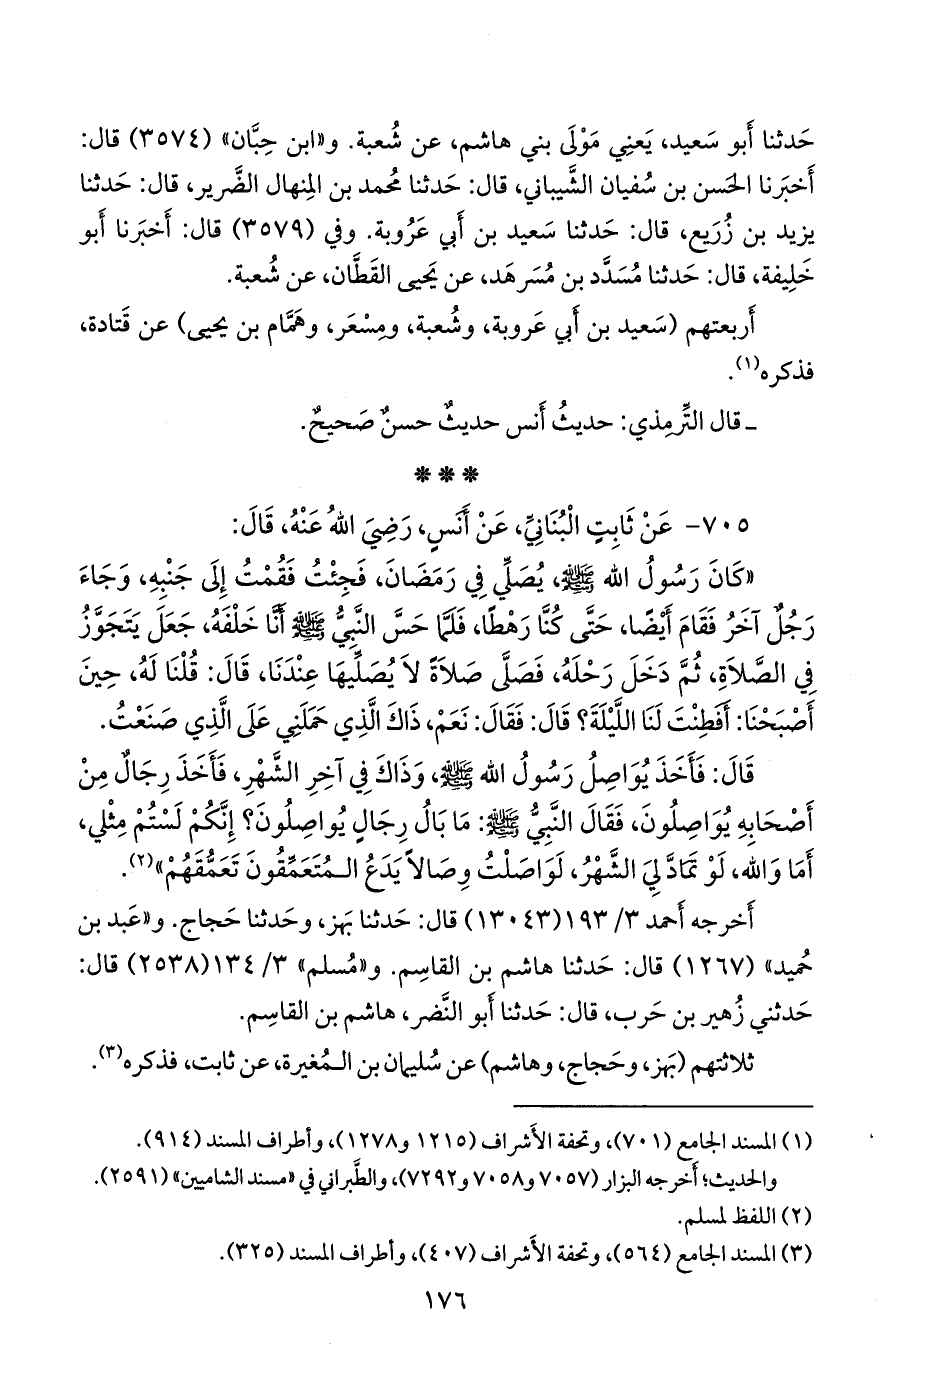 حَدثنا أَبو سَعيد، يَعنِي مَوْلَى بني هاشم، عن شُعبة. و«ابن حِبَّان» (٣٥٧٤) قال:
أَخبَرنا الحَسن بن سُفيان الشَّيباني، قال: حَدثنا مُحمد بن المِنهال الضَّرير، قال: حَدثنا
يزيد بن زُرَيع، قال: حَدثنا سَعيد بن أَبي عَرُوبة. وفي (٣٥٧٩) قال: أَخبَرنا أَبو
خَلِيفة، قال: حَدثنا مُسَدَّد بن مُسَرهَد، عن يَحيى القَطَّان، عن شُعبة.
أَربعتهم (سَعيد بن أَبي عَروبة، وشُعبة، ومِسْعَر، وهَمَّام بن يحيى) عن قَتادة،
فذكره(١).
ـ قال التِّرمِذي: حديثُ أَنس حديثٌ حسنٌ صَحيحٌ.
* * *
٧٠٥- عَنْ ثَابِتٍ الْبُنَانِيِّ، عَنْ أَنَسٍ، رَضِيَ اللهُ عَنْهُ، قَالَ:
«كَانَ رَسُولُ الله ﷺ، يُصَلِّي فِي رَمَضَانَ، فَجِئْتُ فَقُمْتُ إِلَى جَنْبِهِ، وَجَاءَ
رَجُلٌ آخَرُ فَقَامَ أَيْضًا، حَتَّى كُنَّا رَهْطًا، فَلَمَّا حَسَّ النَّبِيُّ ﷺ أَنَّا خَلْفَهُ، جَعَلَ يَتَجَوَّزُ
فِي الصَّلاَةِ، ثُمَّ دَخَلَ رَحْلَهُ، فَصَلَّى صَلاَةً لاَ يُصَلِّيهَا عِنْدَنَا، قَالَ: قُلْنَا لَهُ، حِينَ
أَصْبَحْنَا: أَفَطِنْتَ لَنَا اللَّيْلَةَ؟ قَالَ: فَقَالَ: نَعَمْ، ذَاكَ الَّذِي حَمَلَنِي عَلَى الَّذِي صَنَعْتُ.
قَالَ: فَأَخَذَ يُوَاصِلُ رَسُولُ الله ﷺ، وَذَاكَ فِي آخِرِ الشَّهْرِ، فَأَخَذَ رِجَالٌ مِنْ
أَصْحَابِهِ يُوَاصِلُونَ، فَقَالَ النَّبِيُّ ﷺ: مَا بَالُ رِجَالٍ يُوَاصِلُونَ؟ إِنَّكُمْ لَسْتُمْ مِثْلِي،
أَمَا وَالله، لَوْ تَمَادَّ لِيَ الشَّهْرُ، لَوَاصَلْتُ وِصَالاً يَدَعُ الْـمُتَعَمِّقُونَ تَعَمُّقَهُمْ»(٢).
أَخرجه أَحمد ٣/ ١٩٣(١٣٠٤٣) قال: حَدثنا بَهز، وحَدثنا حَجاج. و«عَبد بن
حُميد» (١٢٦٧) قال: حَدثنا هاشم بن القاسِم. و«مُسلم» ٣/ ١٣٤(٢٥٣٨) قال:
حَدثني زُهير بن حَرب، قال: حَدثنا أَبو النَّضر، هاشم بن القاسِم.
ثلاثتهم (بَهز، وحَجاج، وهاشم) عن سُليمان بن الـمُغيرة، عن ثابت، فذكره(٣).
(١) المسند الجامع (٧٠١)، وتحفة الأَشراف (١٢١٥ و١٢٧٨)، وأَطراف المسند (٩١٤).
والحديث؛ أَخرجه البزار (٧٠٥٧ و٧٠٥٨ و٧٢٩٢)، والطَّبراني في «مسند الشاميين» (٢٥٩١).
(٢) اللفظ لمسلم.
(٣) المسند الجامع (٥٦٤)، وتحفة الأَشراف (٤٠٧)، وأَطراف المسند (٣٢٥).
١٧٦